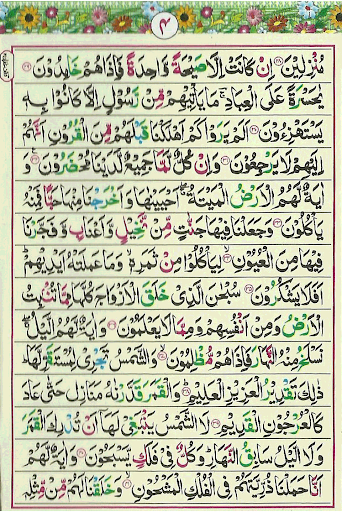 ۴
مُنْزِلِیْنَ ﴿۲۸﴾ اِنْ كَانَتْ اِلَّا صَیْحَةً وَّاحِدَةً فَاِذَا هُمْ خٰمِدُوْنَ ﴿۲۹﴾
یٰحَسْرَةً عَلَی الْعِبَادِ ۚ مَا یَاْتِیْهِمْ مِّنْ رَّسُوْلٍ اِلَّا كَانُوْا بِهٖ
یَسْتَهْزِءُوْنَ ﴿۳۰﴾ اَلَمْ یَرَوْا كَمْ اَهْلَكْنَا قَبْلَهُمْ مِّنَ الْقُرُوْنِ اَنَّهُمْ
اِلَیْهِمْ لَا یَرْجِعُوْنَ ﴿۳۱﴾ وَاِنْ كُلٌّ لَّمَّا جَمِیْعٌ لَّدَیْنَا مُحْضَرُوْنَ ﴿۳۲﴾ وَ
اٰیَةٌ لَّهُمُ الْاَرْضُ الْمَیْتَةُ ۖۚ اَحْیَیْنٰهَا وَ اَخْرَجْنَا مِنْهَا حَبًّا فَمِنْهُ
یَاْكُلُوْنَ ﴿۳۳﴾ وَجَعَلْنَا فِیْهَا جَنّٰتٍ مِّنْ نَّخِیْلٍ وَّ اَعْنَابٍ وَّ فَجَّرْنَا
فِیْهَا مِنَ الْعُیُوْنِ ﴿۳۴﴾ لِیَاْكُلُوْا مِنْ ثَمَرِهٖ ۙ وَمَا عَمِلَتْهُ اَیْدِیْهِمْ ؕ
اَفَلَا یَشْكُرُوْنَ ﴿۳۵﴾ سُبْحٰنَ الَّذِیْ خَلَقَ الْاَزْوَاجَ كُلَّهَا مِمَّا تُنْۢبِتُ
الْاَرْضُ وَمِنْ اَنْفُسِهِمْ وَمِمَّا لَا یَعْلَمُوْنَ ﴿۳۶﴾ وَاٰیَةٌ لَّهُمُ الَّیْلُ ۖۚ
نَسْلَخُ مِنْهُ النَّهَارَ فَاِذَا هُمْ مُّظْلِمُوْنَ ﴿۳۷﴾ وَالشَّمْسُ تَجْرِیْ لِمُسْتَقَرٍّ لَّهَا ؕ
ذٰلِكَ تَقْدِیْرُ الْعَزِیْزِ الْعَلِیْمِ ﴿۳۸﴾ وَالْقَمَرَ قَدَّرْنٰهُ مَنَازِلَ حَتّٰی عَادَ
كَالْعُرْجُوْنِ الْقَدِیْمِ ﴿۳۹﴾ لَا الشَّمْسُ یَنْۢبَغِیْ لَهَاۤ اَنْ تُدْرِكَ الْقَمَرَ
وَلَا الَّیْلُ سَابِقُ النَّهَارِ ؕ وَكُلٌّ فِیْ فَلَكٍ یَّسْبَحُوْنَ ﴿۴۰﴾ وَاٰیَةٌ لَّهُمْ
اَنَّا حَمَلْنَا ذُرِّیَّتَهُمْ فِی الْفُلْكِ الْمَشْحُوْنِ ﴿۴۱﴾ وَخَلَقْنَا لَهُمْ مِّنْ مِّثْلِهٖ